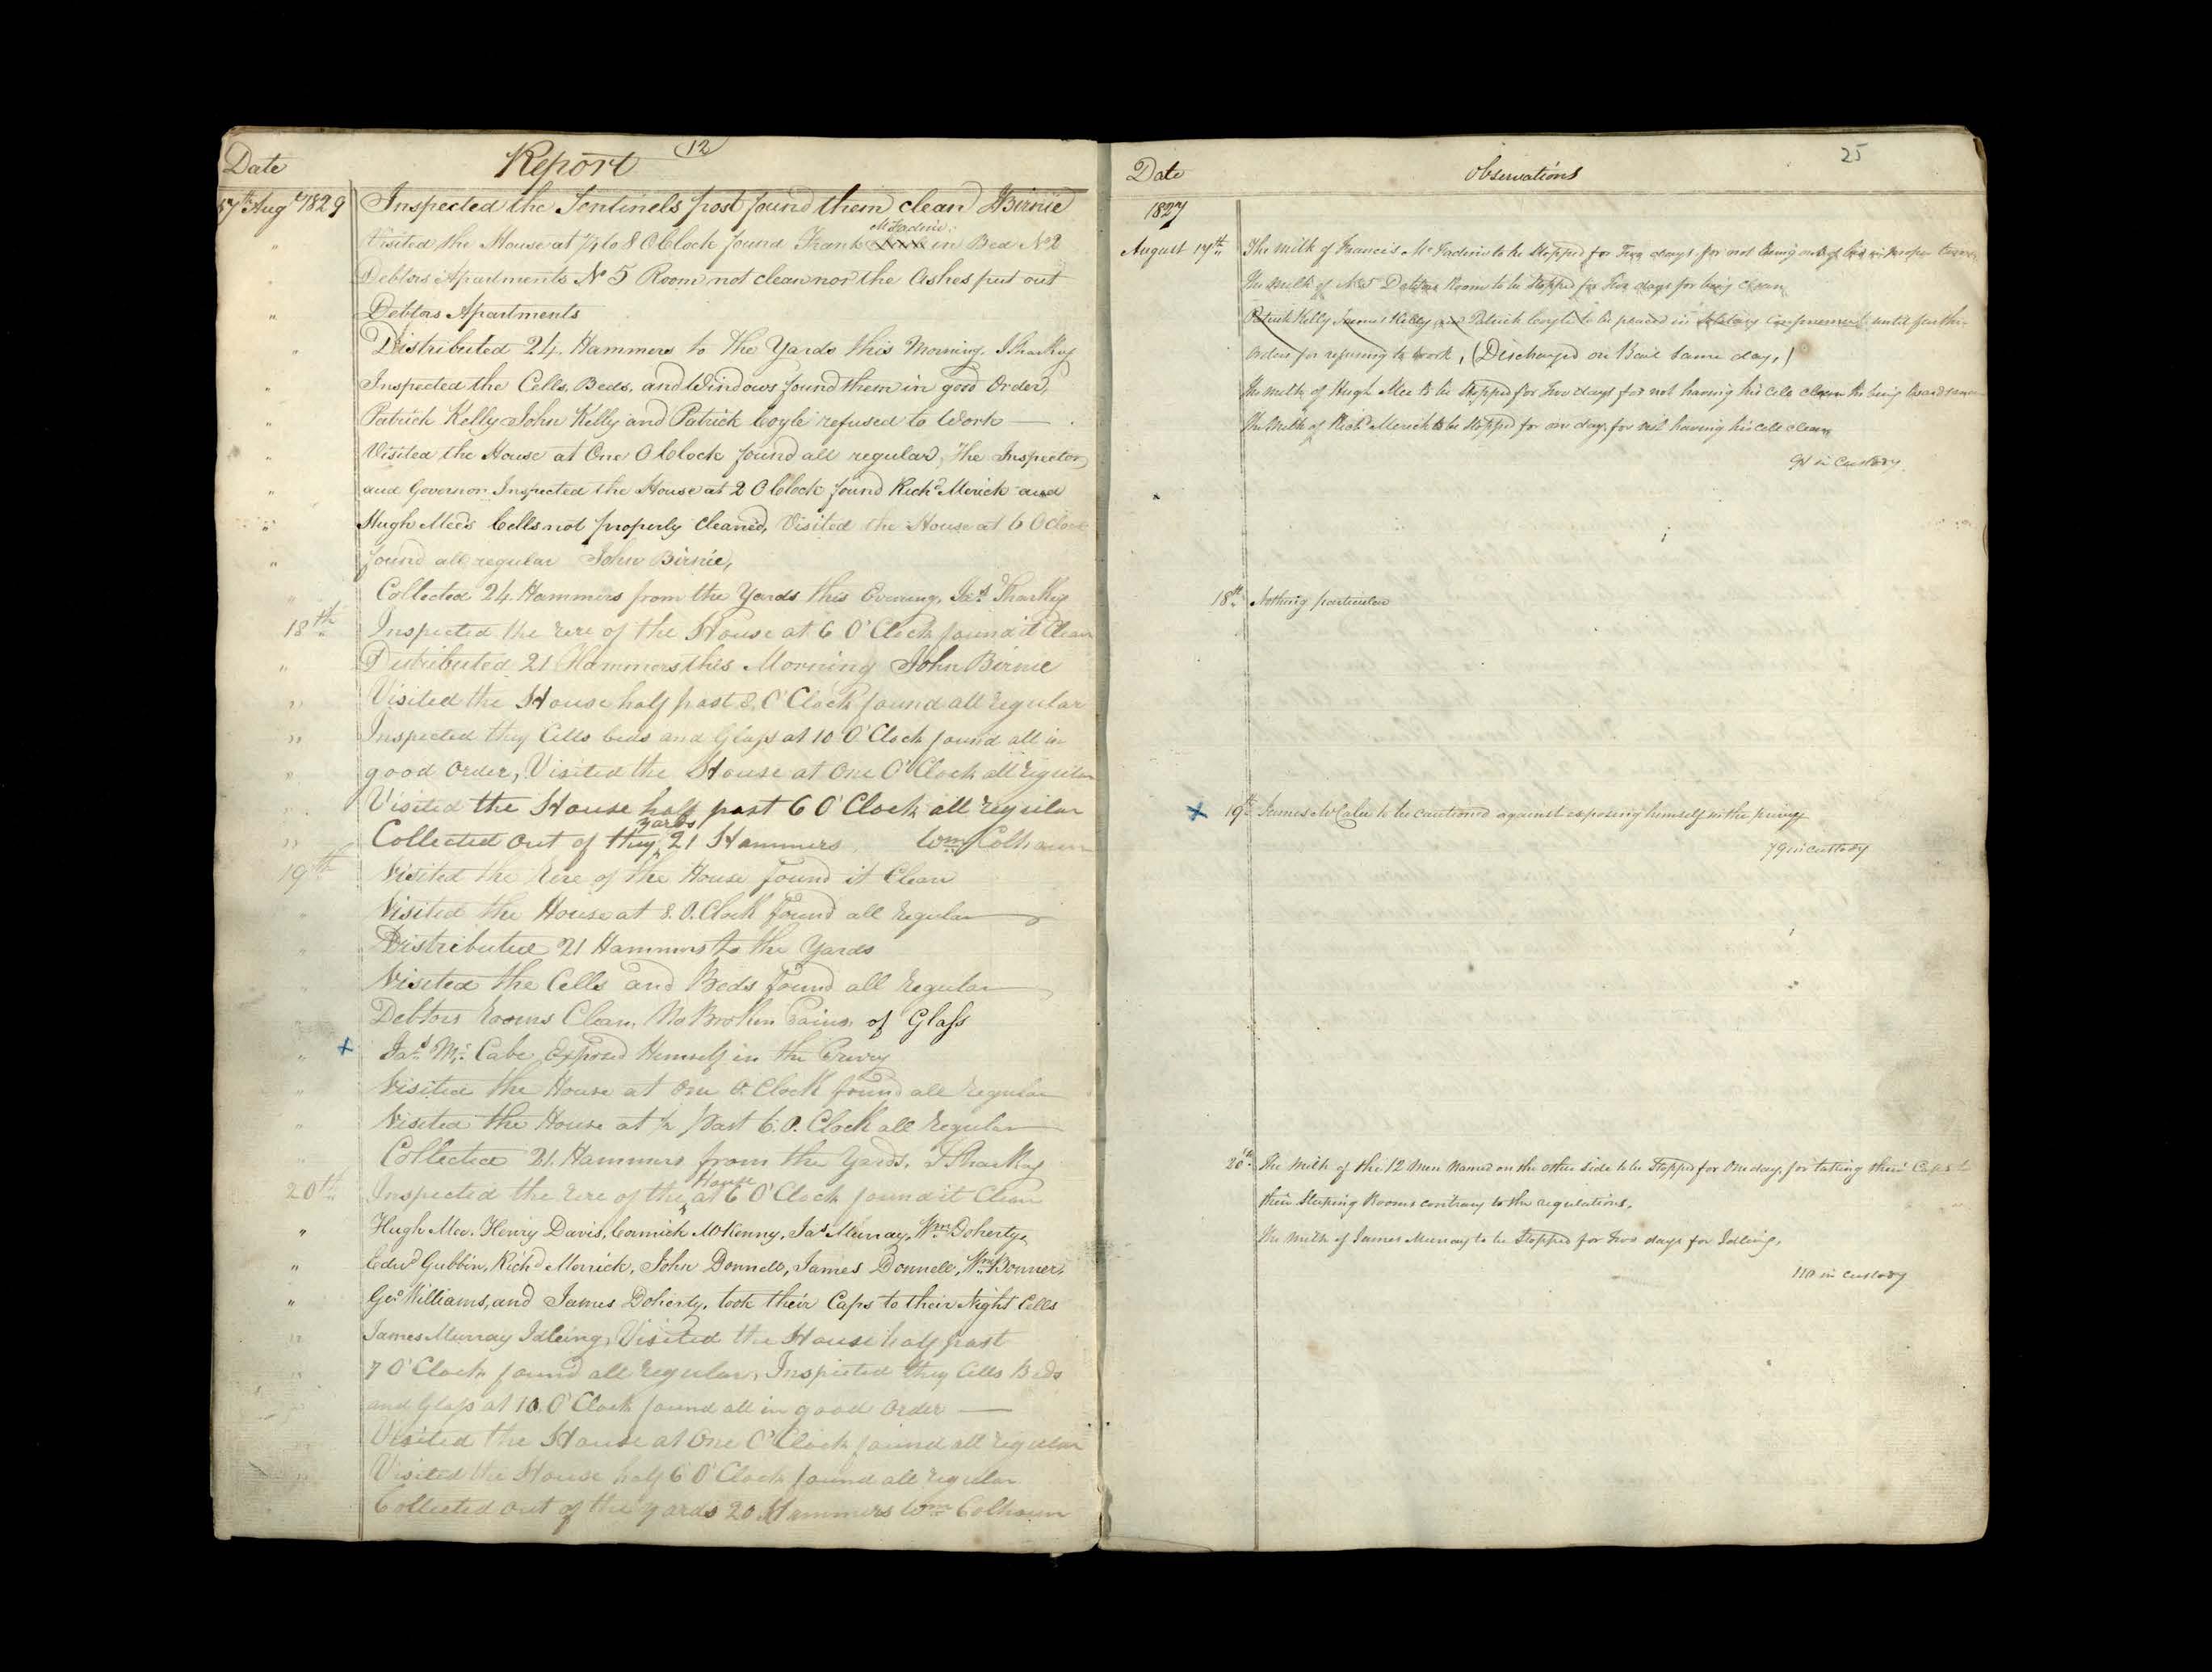 Date Report 12
17th Augt 1829 Inspected the Sentinels post found them clean JBirnie
" Visited the House at ¼ to 8 OClock found Frank McFadin in Bed No 2
" Debtors Apartments No 5 Room not clean nor the Ashes put out
" Debtors Apartments
" Distributed 24. Hammers to the Yards this Morning. J Sharkey
" Inspected the Cells, Beds, and Windows, found them in good Order,
" Patrick Kelly John Kelly and Patrick Coyle refused to Work
" Visited the House at One OClock found all regular, The Inspector
" and Governor Inspected the House at 2 OClock found Richd Merick and
" Hugh Mees Cells not properly Cleaned, Visited the House at 6 OClock
" found all regular John Birnie,
" Collected 24. Hammers from the Yards this Evening, Jas Sharkey
18th Inspected the rere of the House at 6 O'Clock found it Clean
" Distributed 21 Hammers this Morning John Birnie
" Visited the House half past 8. O'Clock found all regular
" Inspected they Cells beds and Glass at 10 O'Clock found all in
" good Order, Visited the House at One O'Clock all regular
" Visited the House half past 6 O'Clock all regular
" Collected out of they yards 21 Hammers Wm Colhoun
19th Visited the rere of the House found it Clean
" Visited the House at 8. O.Clock found all regular
" Distributed 21 Hammers to the Yards
" Visited the Cells and Beds found all regular
" Debtors Rooms Clean, No Broken Pains of Glass
" x Jas Mc Cabe Exposed Himself in the Privey
" Visited the House at one O.Clock found all regular
" Visited the House at ½ past 6. O. Clock all regular
" Collected 21. Hammers from the Yards, J Sharkey
20th Inspected the rere of the House at 6 O'Clock found it Clean
" Hugh Mee, Henry Davis, Cormick McKenny, Jas Murray, Wm Doherty,
" Edwd Gubbin, Richd Merrick, John Donnell, James Donnell, Wm Bonner,
" Geo Williams, and James Doherty, took their Caps to their Night Cells
" James Murray Idleing, Visited the House half past
" 7 O'Clock found all regular, Inspected they Cells Beds
" and Glass at 10. O'Clock found all in good Order
" Visited the House at One O'Clock found all regular
" Visited the House half 6 O'Clock found all regular
Collected out of the yards 20 Hammers Wm Colhoun
Date Observations 25
1827
August 17th The milk of Francis McFadin to be Stopped for Two days for not being out of bed in proper time
The milk of No 5 Debtors Room to be stopped for Two days for being
Patrick Kelly James Kelly and Patrick Coyle to be placed in Solitary Confinement until further
orders for refusing to work, (Discharged on Bail same day,)
The milk of Hugh Mee to be stopped for Two days for not having his cell clean he being
The milk of Richd Merick to be stopped for one day for not having his cell clean
in Custody
18th Nothing particular
x 19th James McCabe to be cautioned against exposing himself in the privey
79 in custody
20th The milk of the 12 Men named on the other side to be Stopped for One day, for taking their Caps to
their Sleeping Rooms contrary to the regulations,
The milk of James Murray to be Stopped for Two days for Idleing,
110 in custody